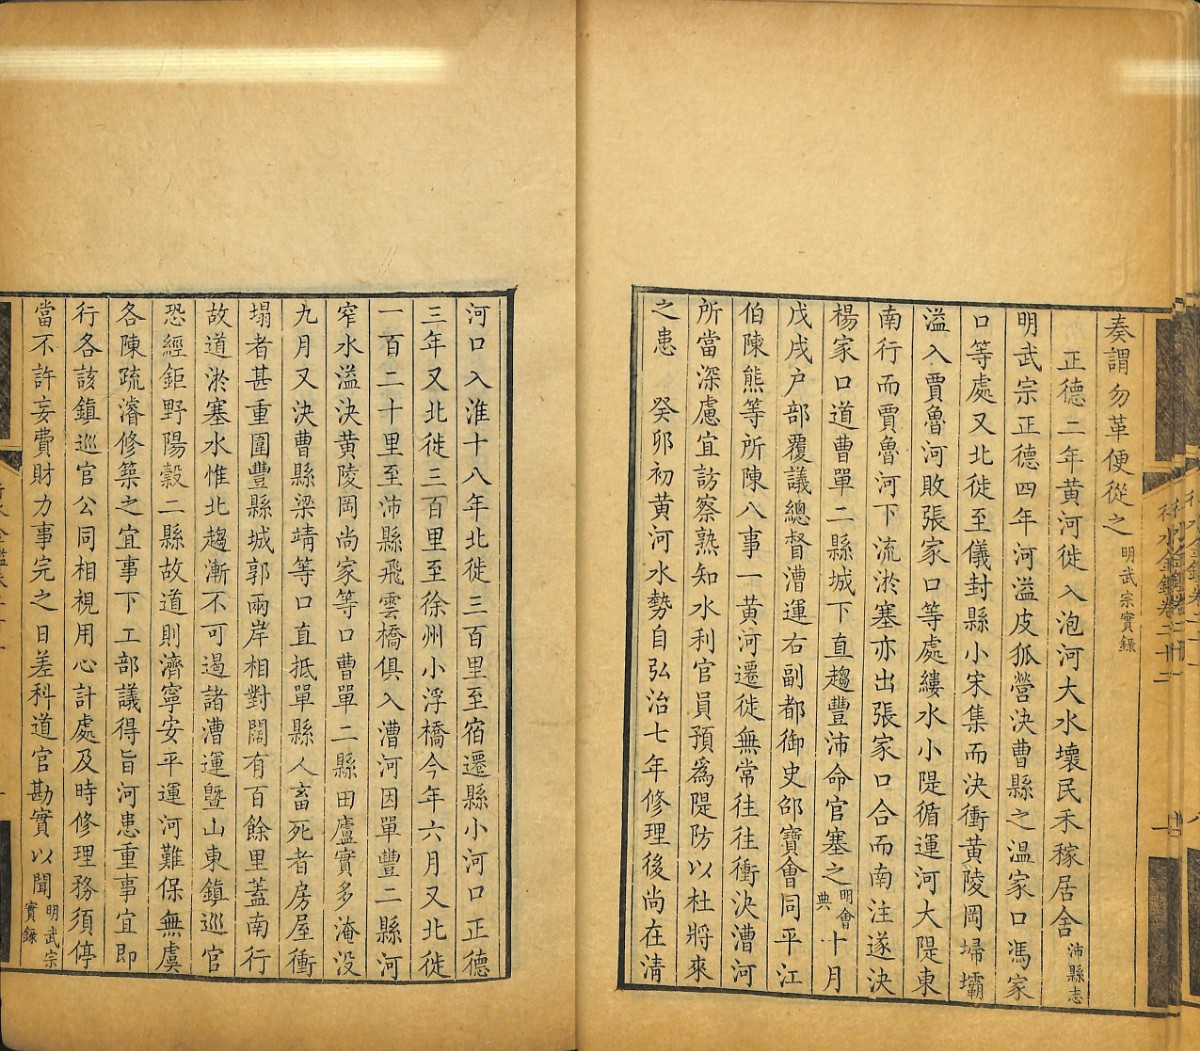 奏謂勿革便從之明武宗實錄
正德二年黃河徙入泡河大水壞民禾稼居舍沛縣志
明武宗正德四年河溢皮狐營決曹縣之溫家口馮家
口等處又北徙至儀封縣小宋集而決衝黃陵岡埽壩
溢入賈魯河敗張家口等處縷水小隄循運河大隄東
南行而賈魯河下流淤塞亦出張家口合而南注遂決
楊家口道曹單二縣城下直趨豐沛命官塞之明會典十月
戊戌户部覆議總督漕運右副都御史邵寶會同平江
伯陳熊等所陳八事一黃河遷徙無常往往衝決漕河
所當深慮宜訪察熟知水利官員預爲隄防以杜將來
之患 癸卯初黃河水勢自弘治七年修理後尚在清
河口入淮十八年北徙三百里至宿遷縣小河口正德
三年又北徙三百里至徐州小浮橋今年六月又北徙
一百二十里至沛縣飛雲橋俱入漕河因單豐二縣河
窄水溢決黃陵岡尚家等口曹單二縣田廬實多淹没
九月又決曹縣梁靖等口直抵單縣人畜死者房屋衝
塌者甚重圍豐縣城郭兩岸相對闊有百餘里蓋南行
故道淤塞水惟北趨漸不可遏諸漕運曁山東鎮巡官
恐經鉅野陽穀二縣故道則濟寧安平運河難保無虞
各陳疏濬修築之宜事下工部議得旨河患重事宜即
行各該鎮巡官公同相視用心計處及時修理務須停
當不許妄費財力事完之日差科道官勘實以聞明武宗實錄